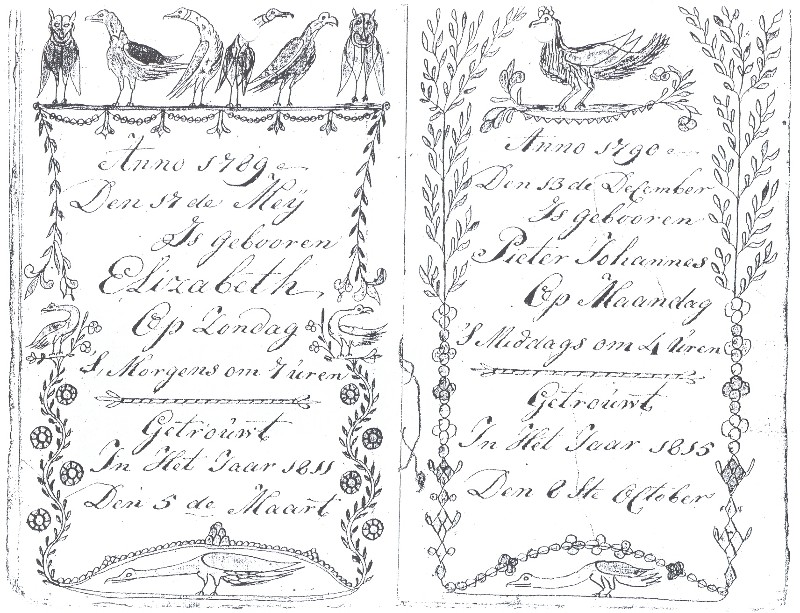 Anno 1789
Den 17 de Meÿ
Is gebooren
Elizabeth
Op Zondag
'S Morgens om 7 uren
Getroúwt
In Het Jaar 1811
Den 5 de Maart
Anno 1790
Den 13 de December
Is gebooren
Pieter Johannes
Op Maandag
'S Middags om 4 Uren
Getroúwt
In Het Jaar 1815
Den 8 Ste October